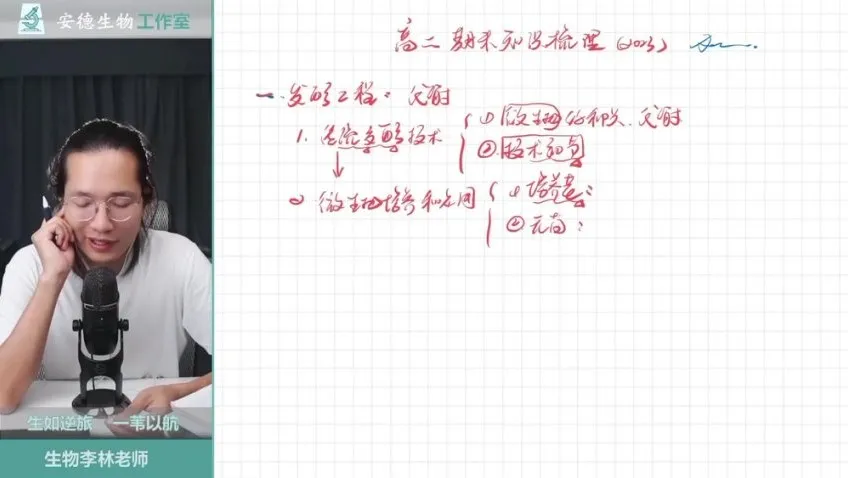 安德生物 工作室
高二期末知识梳理 (2023)
一. 发酵工程:
1. 传统发酵技术
① 微生物的种类.
② 技术要点
2 微生物培养和应用
① 培养基:
② 无菌:
生如逆旅 一苇以航
生物李林老师